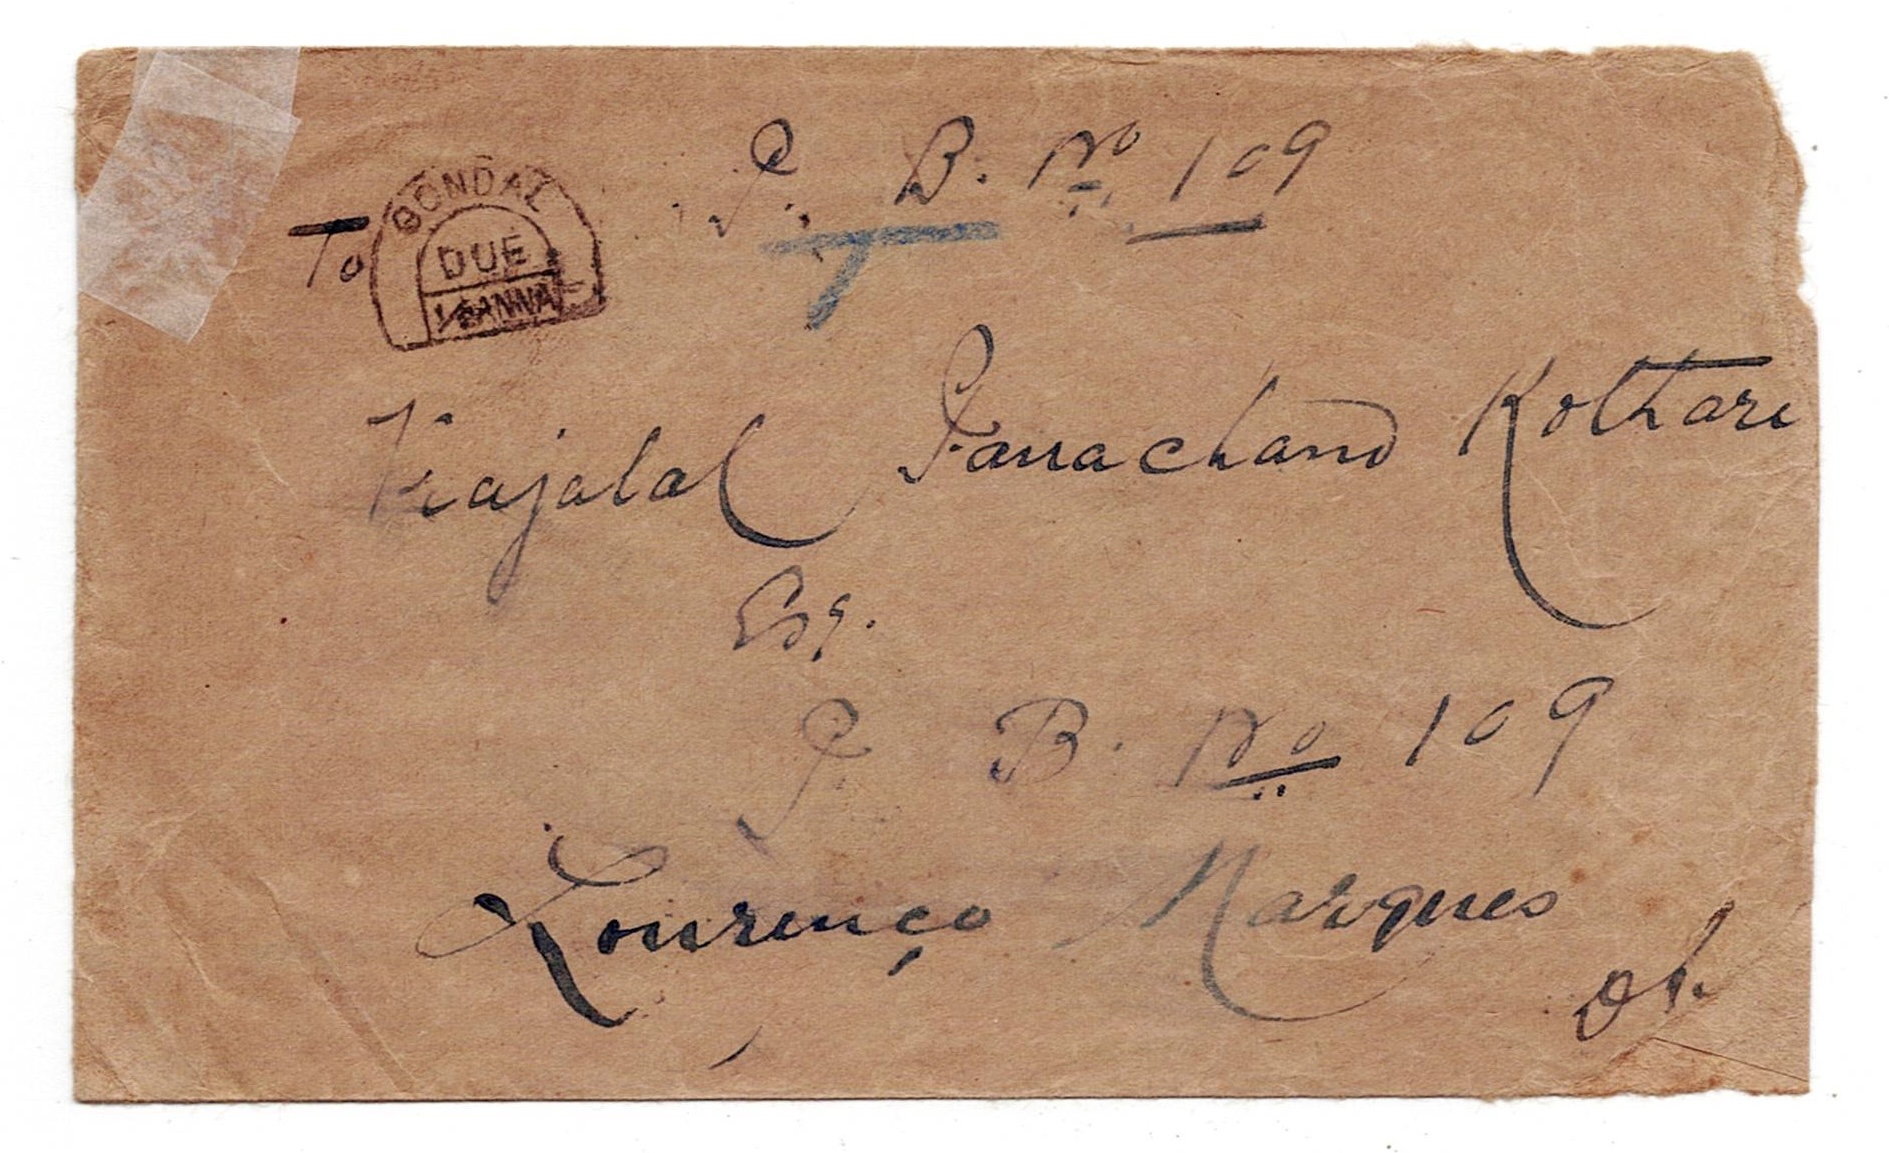 P. B. No 109
To
GONDAL
DUE
1/2 ANNA
Panachand Kothari
Esq.
P. B. No 109
Lourenço Marques